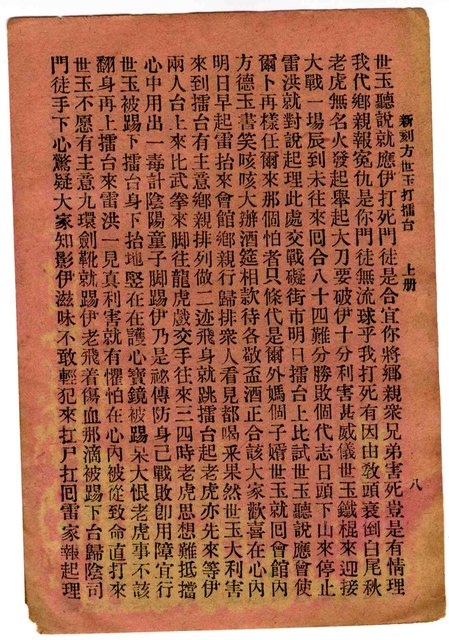 新刻方世玉打擂台　上册　八
世玉聽說就應伊打死門徒是合宜你將鄉親衆兄弟害死豈是有情理
我代鄉親報冤仇是你門徒無流球乎我打死有因由教頭衰倒白尾秋
老虎無名火發起舉起大刀要破伊十分利害甚威儀世玉鐵棍來迎接
大戰一場辰到未往來囘合八十四難分勝敗個代志日頭下山來停止
雷洪就對說起理此處交戰礙街市明日擂台上比試世玉聽說應會使
爾卜再樣任爾來那個怕者只條代是爾外媽個子婿世玉就囘會館內
方德玉書笑咳咳大辦酒筵相款待各敬盃酒正合該大家歡喜在心內
明日早起雷抬來會館鄉親行歸排衆人看見都喝采果然世玉大利害
來到擂台有主意鄉親排列做二迹飛身就跳擂台起老虎亦先來等伊
兩人台上來比武拳來脚往龍虎戲交手往來三四時老虎思想難抵擋
心中用出一毒計陰陽童子脚踢伊乃是祕傳防身己戰敗卽用障宜行
世玉被踢下擂台身下抬地堅在在護心寶鏡被踢呆大恨老虎事不該
翻身再上擂台來雷洪一見真利害就有懼怕在心內被從致命直打來
世玉不愿有主意九環劍靴就踢伊老飛着傷血那滴被踢下台歸陰司
門徒手下心驚疑大家知影伊滋味不敢輕犯來扛尸扛囘雷家報起理